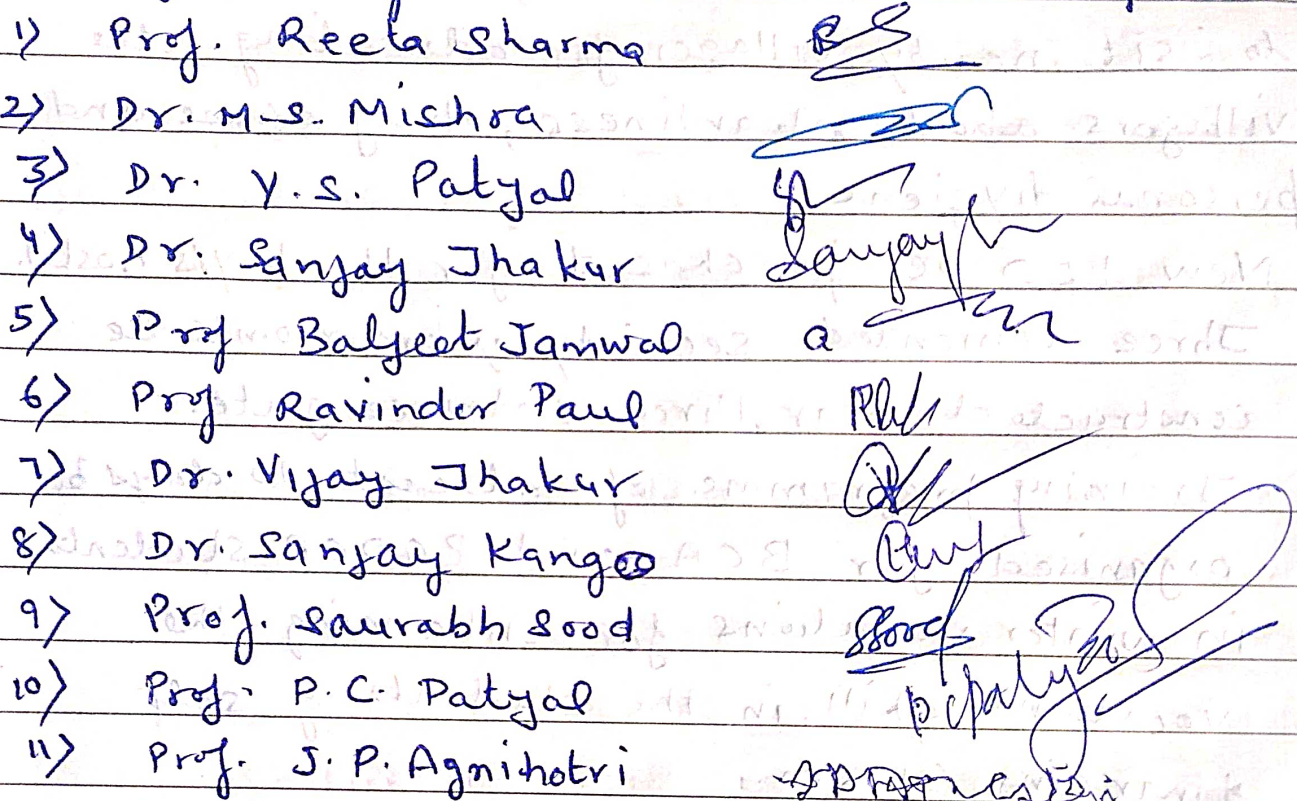 1) Prof. Reeta Sharma
2) Dr. M.S. Mishra
3) Dr. Y.S. Patyal
4) Dr. Sanjay Thakur Sanjay
5) Prof Baljeet Jamwal
6) Prof Ravinder Paul
7) Dr. Vijay Thakur
8) Dr. Sanjay Kangoo
9) Prof. Saurabh Sood SSood
10) Prof. P.C. Patyal pcpatyal
11) Prof. J.P. Agnihotri